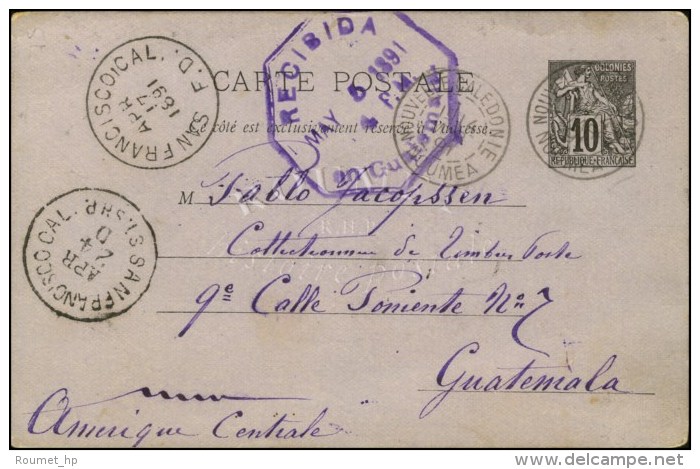 RECIBIDA
MAY 5 1891
4 P.M.
SAN FRANCISCO CAL. F.D.
APR
17
1891
CARTE POSTALE
COLONIES
POSTES
10
REPUBLIQUE FRANÇAISE
NOUVELLE CALEDONIE
NOUMEA
Ce côté est exclusivement réservé à l'adresse
M Pablo Jacopssen
Collectionneur de Timbres Poste
9e Calle Poniente No 7
Guatemala
SAN FRANCISCO CAL.
APR
24
D
Amerique Centrale
Roumet_hp
delcampe.net